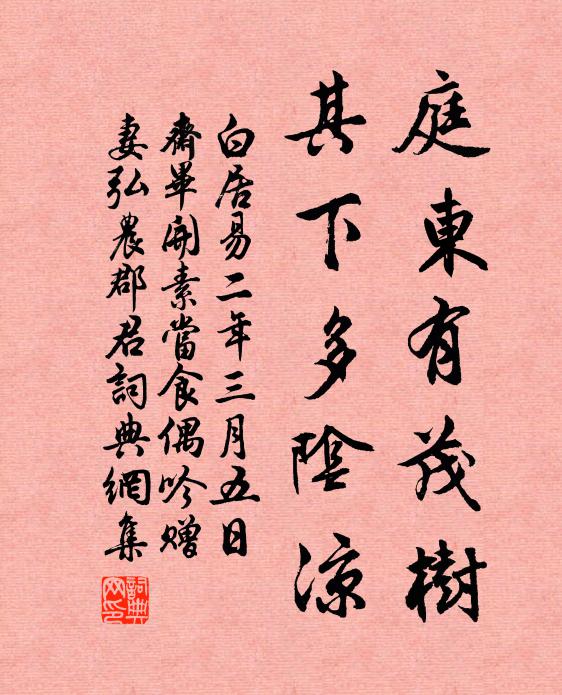 庭東有茂樹
其下多陰涼
白居易二年三月五日
齋畢開素當食偶吟贈
妻弘農郡君詞典網集
詞典
网印